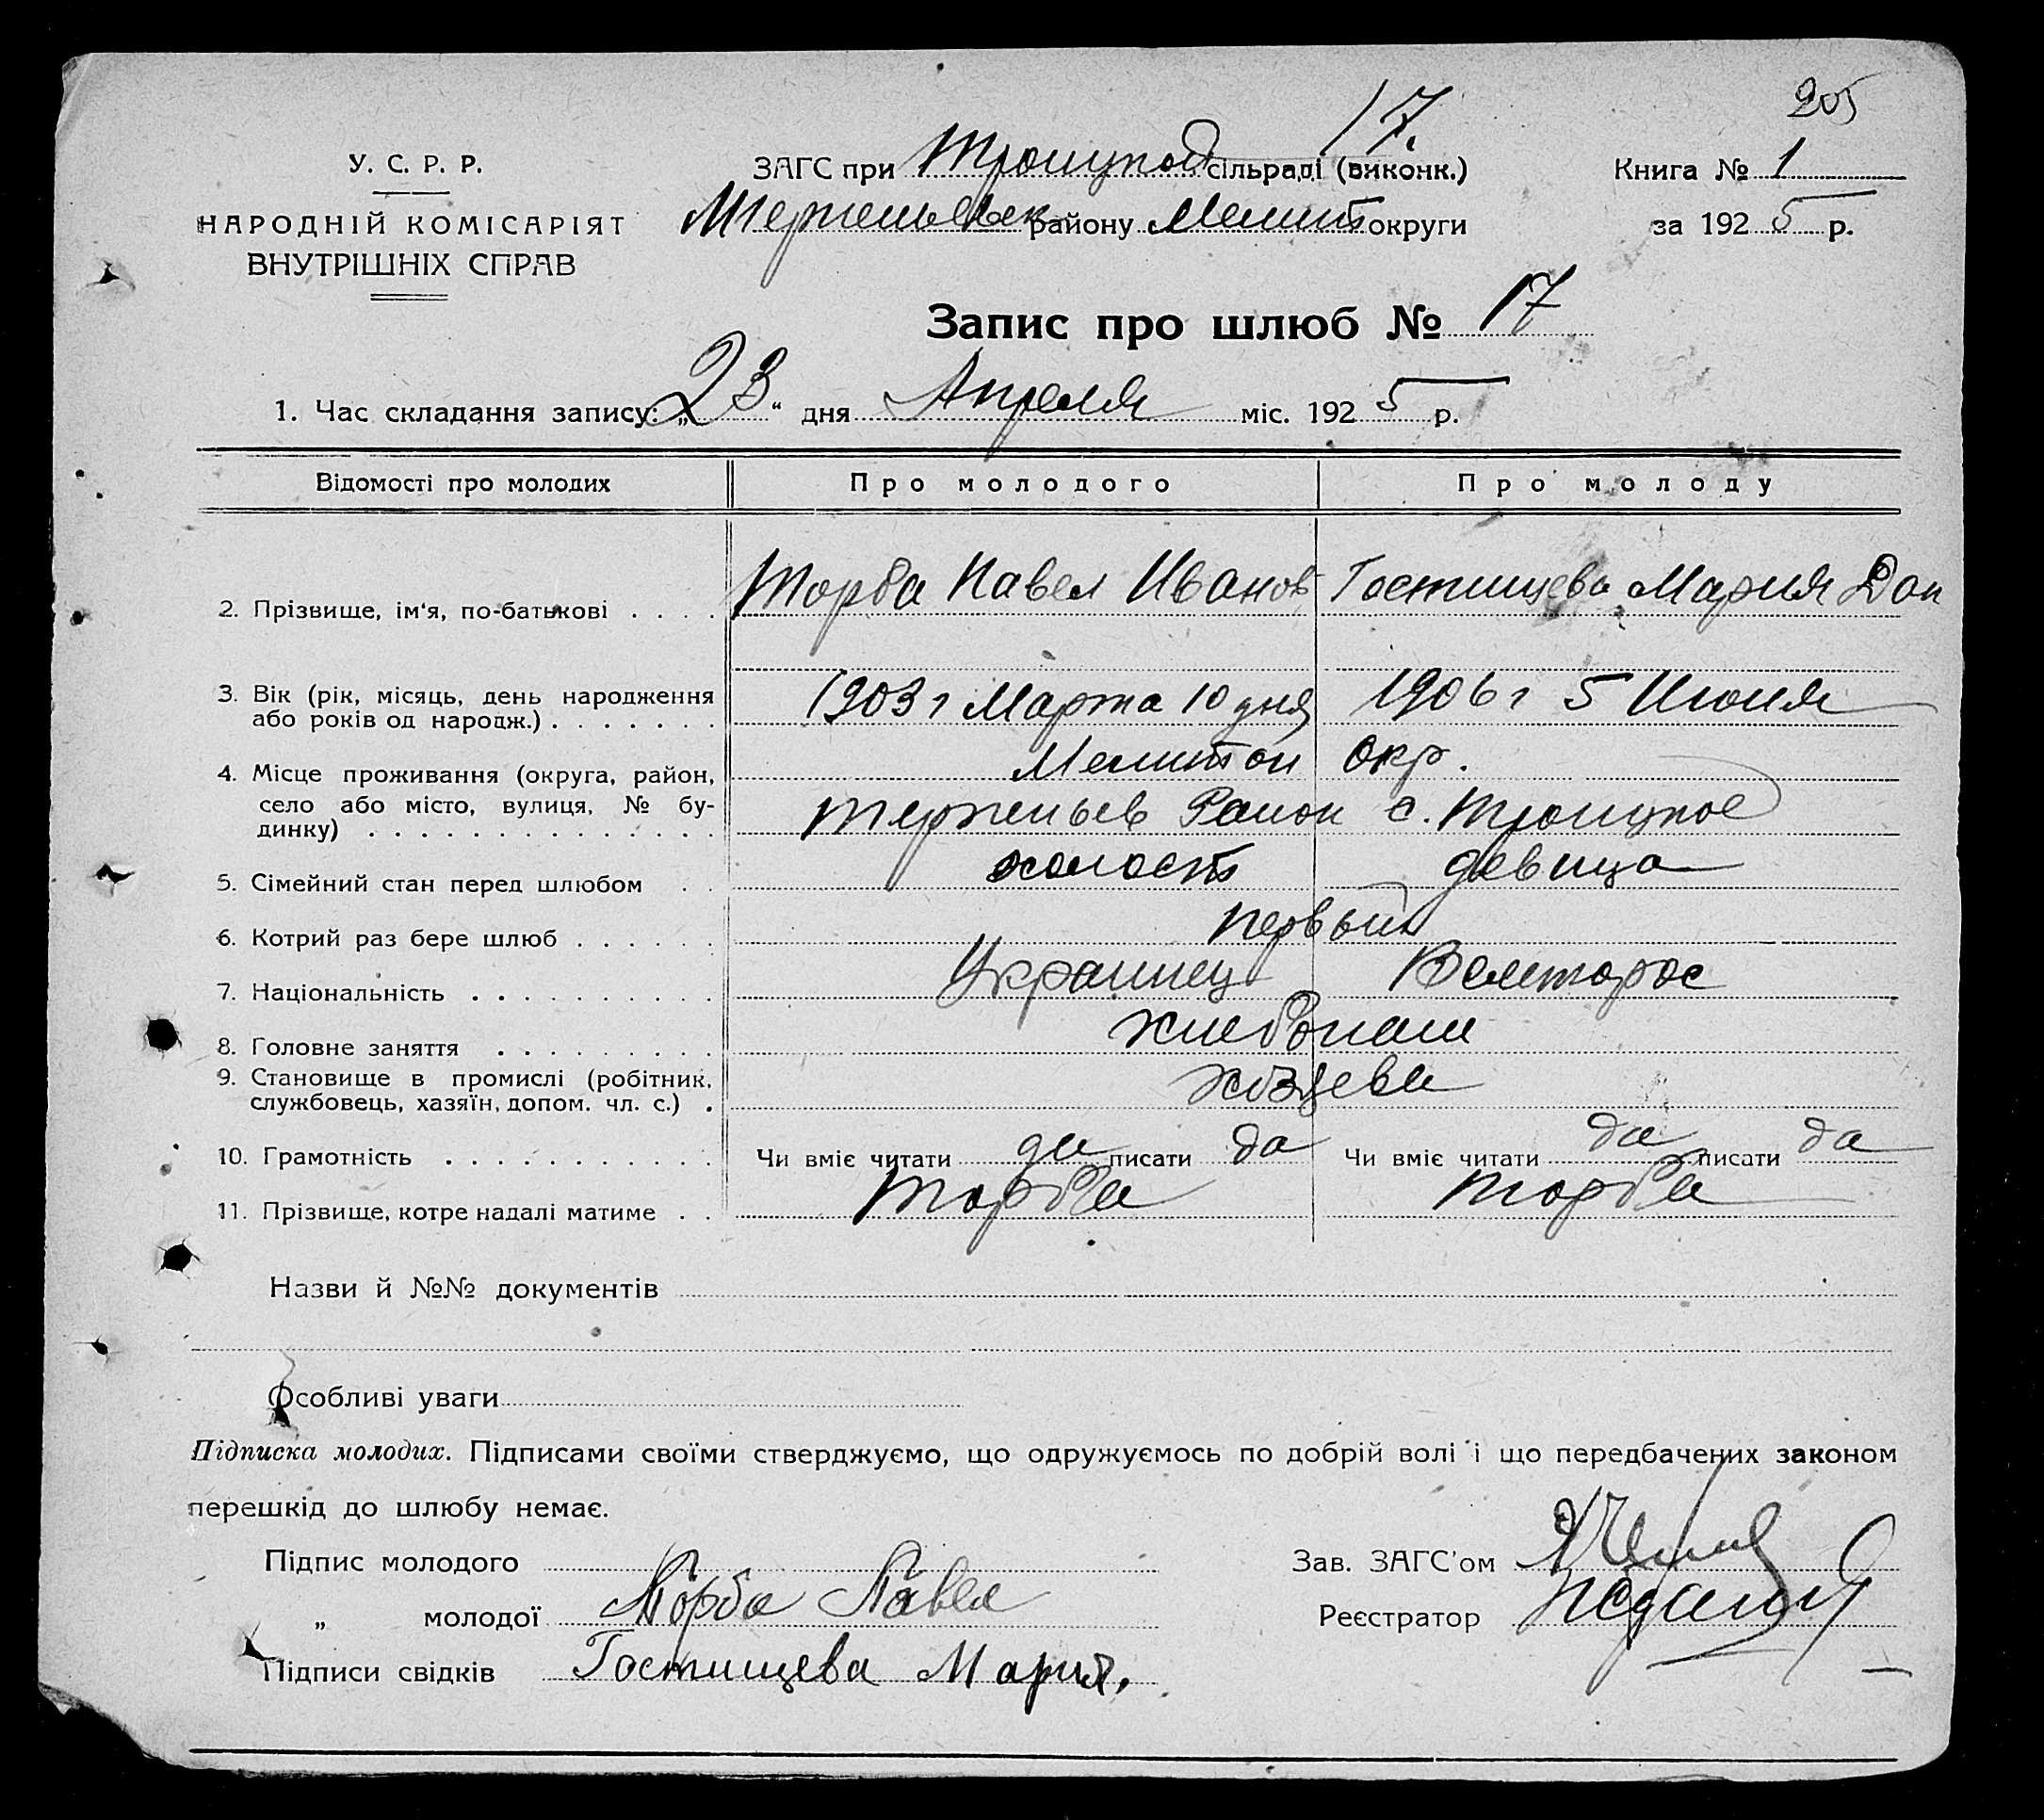 205
17.
У. С. Р. Р.
НАРОДНІЙ КОМІСАРІЯТ
ВНУТРІШНІХ СПРАВ
ЗАГС при Троицкой сільраді (виконк.)
Терпеньевск району Мелит округи
Книга № 1
за 1925 р.
Запис про шлюб № 17
1. Час складання запису: „23“ дня Апреля міс. 1925 р.
Відомості про молодих Про молодого Про молоду
2. Прізвище, ім'я, по-батькові . . . . Торба Павел Иванов Гостищева Мария Дан
3. Вік (рік, місяць, день народження
або років од народж.) . . . . . . . 1903 г Марта 10 дня 1906 г 5 Июля
4. Місце проживання (округа, район, Мелитоп Окр.
село або місто, вулиця, № бу-
динку) . . . . . . . . . . . . . . Терпеньев Район с. Троицкое
5. Сімейний стан перед шлюбом . . холост девица
6. Котрий раз бере шлюб . . . . . . первый
7. Національність . . . . . . . . . . Украинец Велторос
8. Головне заняття . . . . . . . . . хлебопаш
9. Становище в промислі (робітник,
службовець, хазяїн, допом. чл. с.) . хозяева
10. Грамотність . . . . . . . . . . . Чи вміє читати да писати да Чи вміє читати да писати да
11. Прізвище, котре надалі матиме . . Торба Торба
Назви й №№ документів
Особливі уваги
Підписка молодих. Підписами своїми стверджуємо, що одружуємось по добрій волі і що передбачених законом
перешкід до шлюбу немає.
Підпис молодого
Зав. ЗАГС'ом
„ молодої Торба Павел
Реєстратор
Підписи свідків Гостищева Мария.